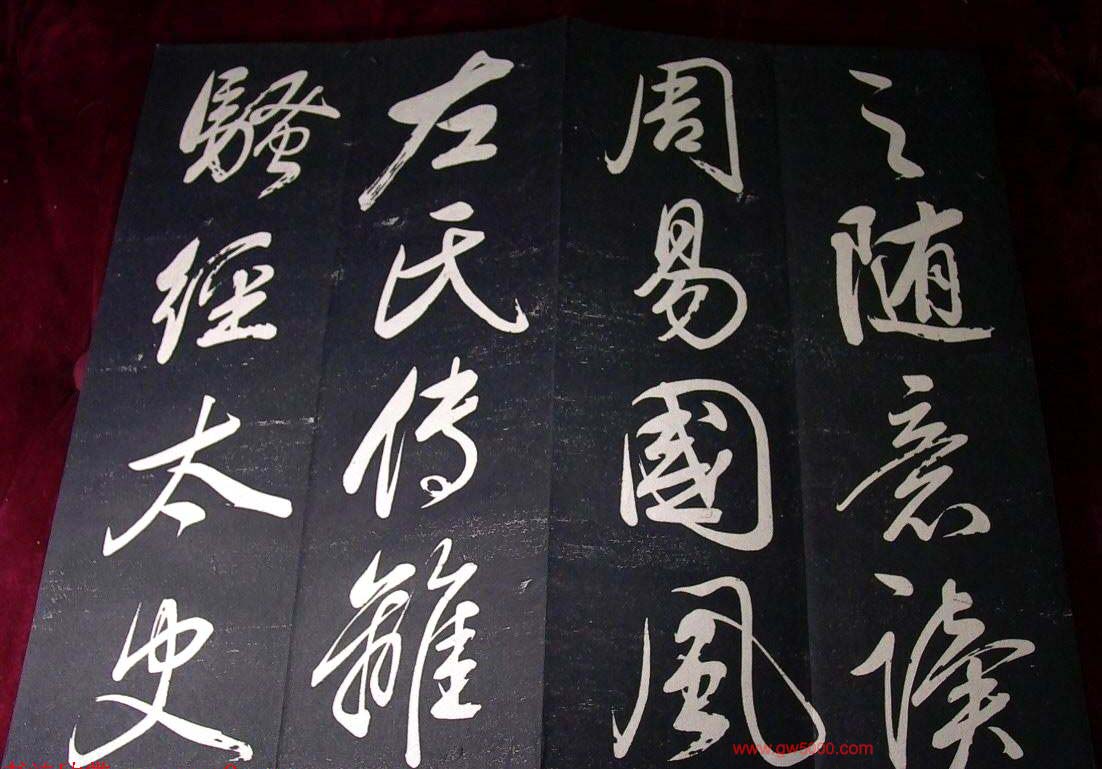 之随意讀
周易國風
左氏傳離
騷經太史
www.gw5000.com